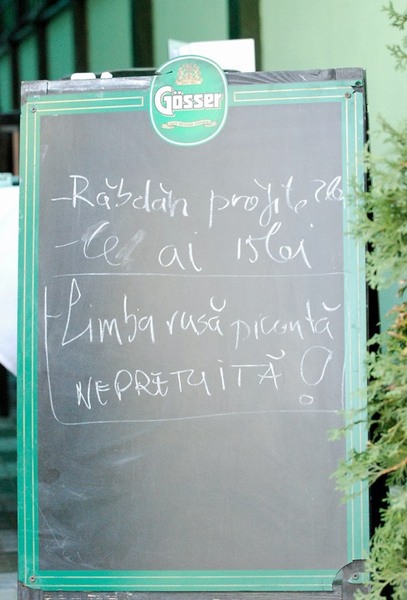 Gösser
-Răbdări prăjite
-Ce ai 15lei
-Limba rusă picantă
NEPREȚUITĂ!